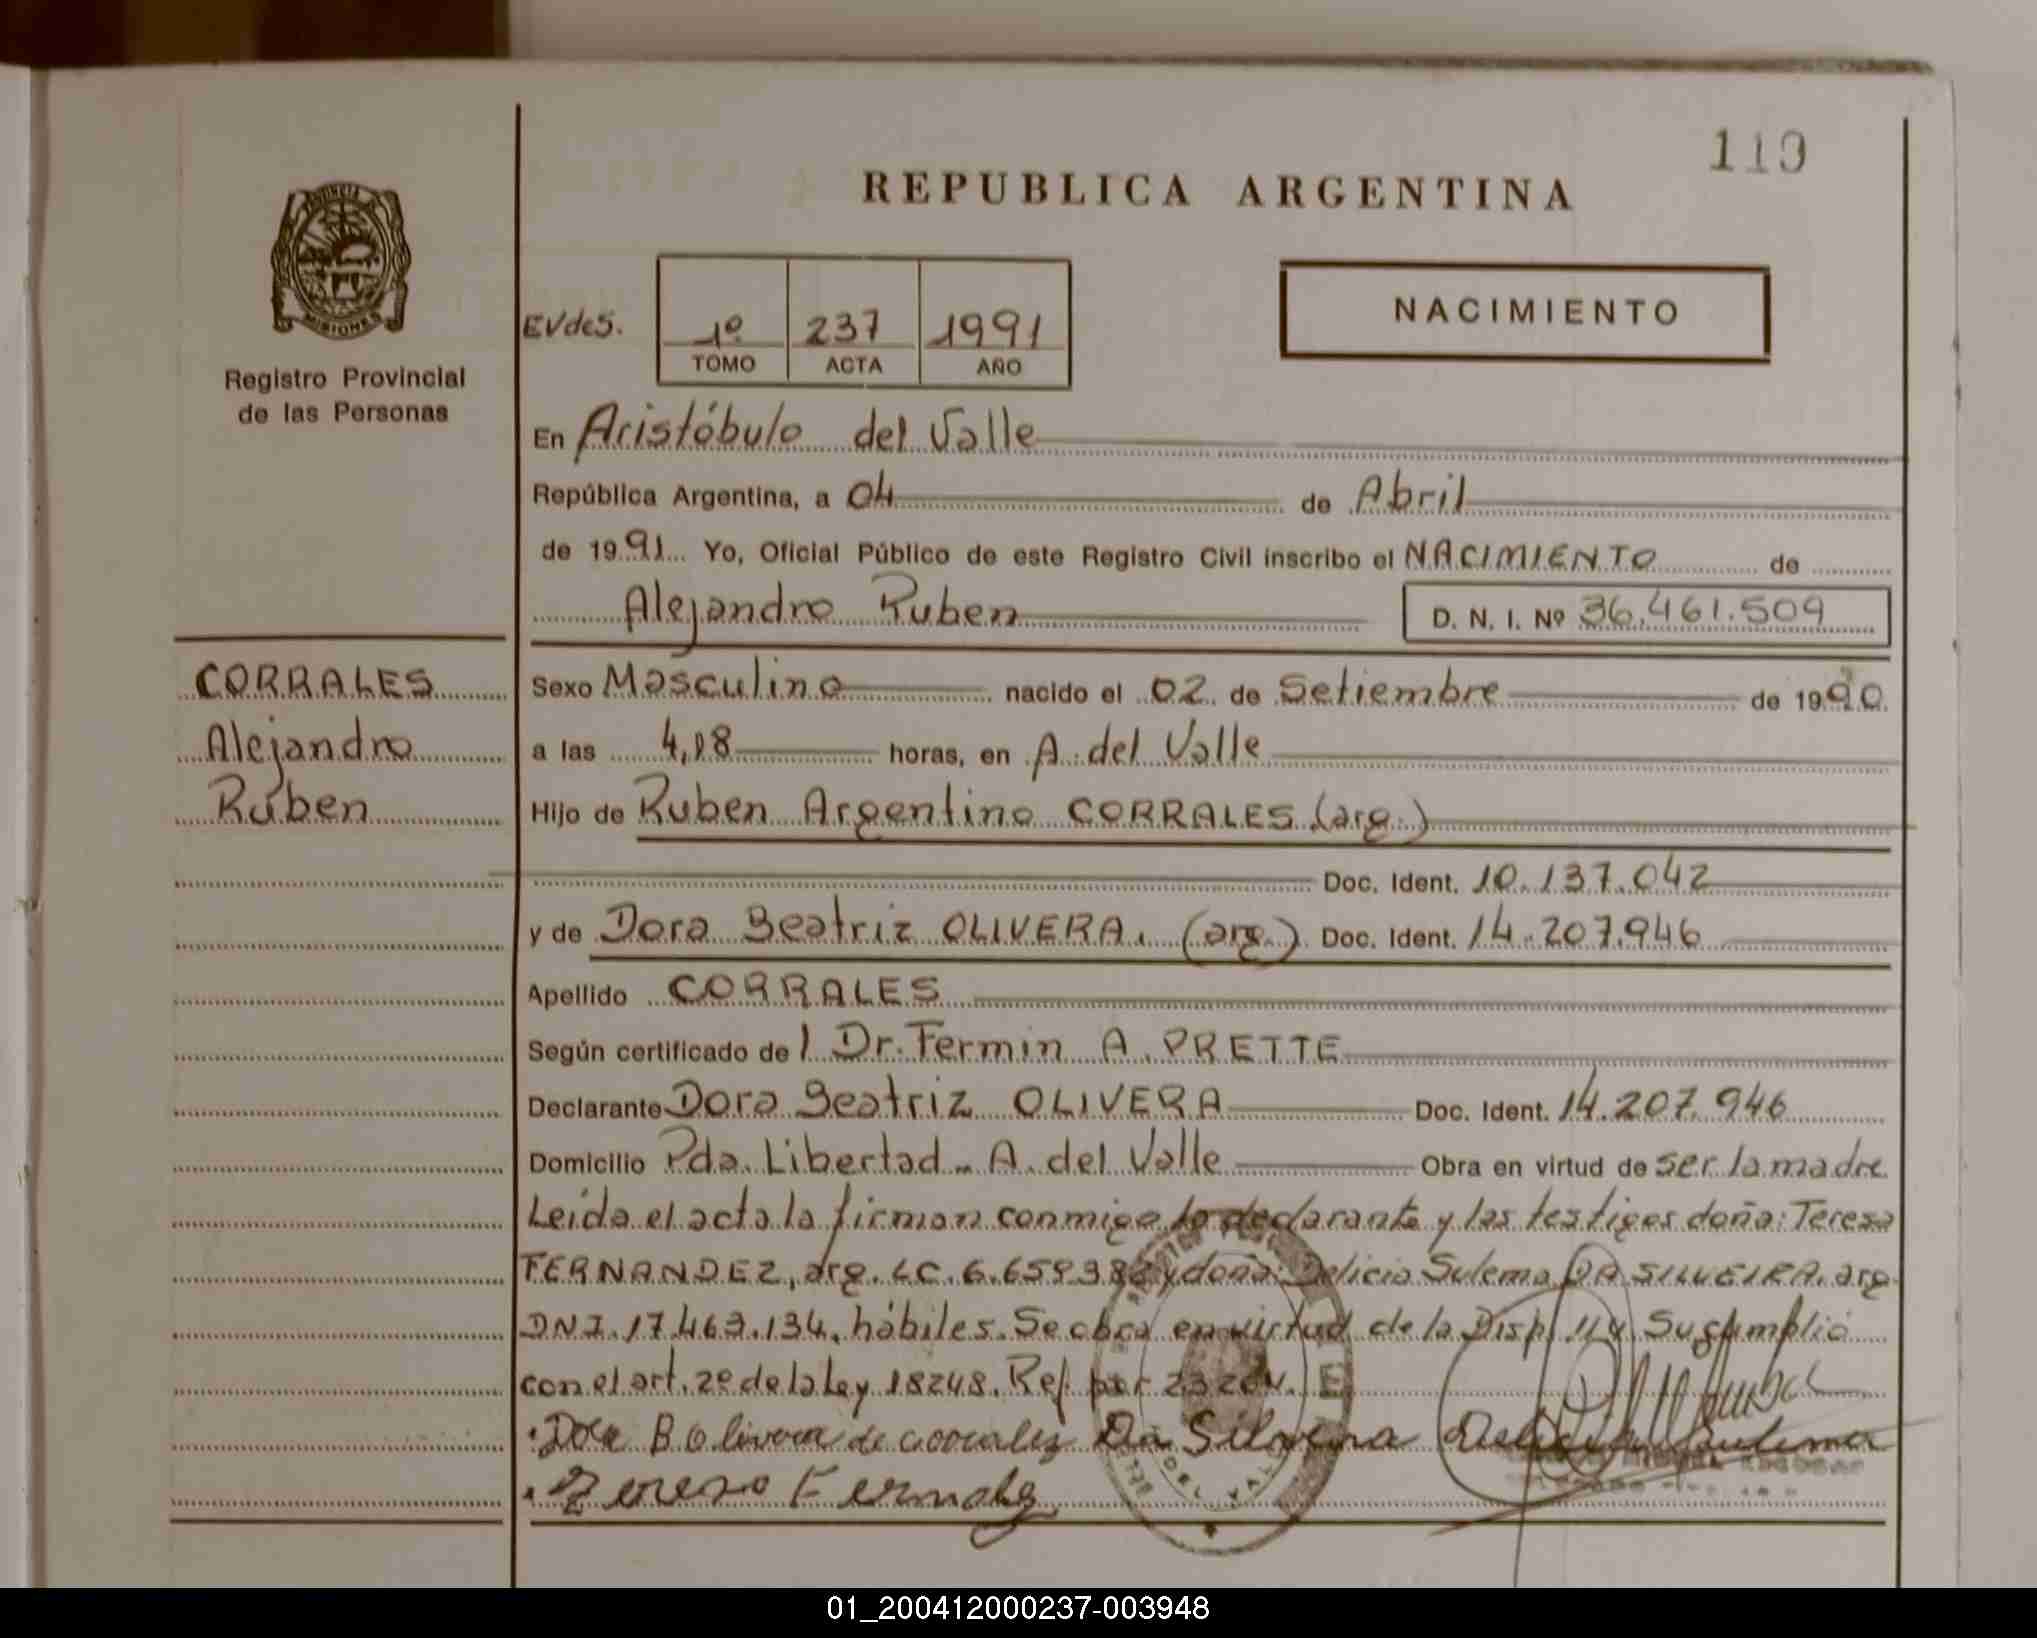 119
REPUBLICA ARGENTINA
PROVINCIA
MISIONES
Registro Provincial
de las Personas
EVdes.
1º 237 1991
TOMO ACTA AÑO
NACIMIENTO
En Aristóbulo del Valle
República Argentina, a 04 de Abril
de 1991 Yo, Oficial Público de este Registro Civil inscribo el NACIMIENTO de
Alejandro Ruben D. N. I. Nº 36.461.509
CORRALES
Alejandro
Ruben
Sexo Masculino nacido el 02 de Setiembre de 1990
a las 4,18 horas, en A. del Valle
Hijo de Ruben Argentino CORRALES (arg.)
Doc. Ident. 10.137.042
y de Dora Beatriz OLIVERA. (arg.) Doc. Ident. 14.207.946
Apellido CORRALES
Según certificado de l Dr. Fermin A. PRETTE
Declarante Dora Beatriz OLIVERA Doc. Ident. 14.207.946
Domicilio Pda. Libertad - A. del Valle Obra en virtud de ser la madre
Leída el acta la firman conmigo la declarante y las testigos doña: Teresa
FERNANDEZ, arg. LC. 6.659.38 y doña: Delicia Sulema DA SILVEIRA. arg
DNI. 17.463.134, hábiles. Se obra en virtud de la Disp. 11/ Se cumplió
con el art. 2º de la Ley 18248. Ref. por 23264.
Dora B Olivera de corrales Da Silveira Delicia Sulema
Tereso Fernandez
DEL VALLE
01_200412000237-003948